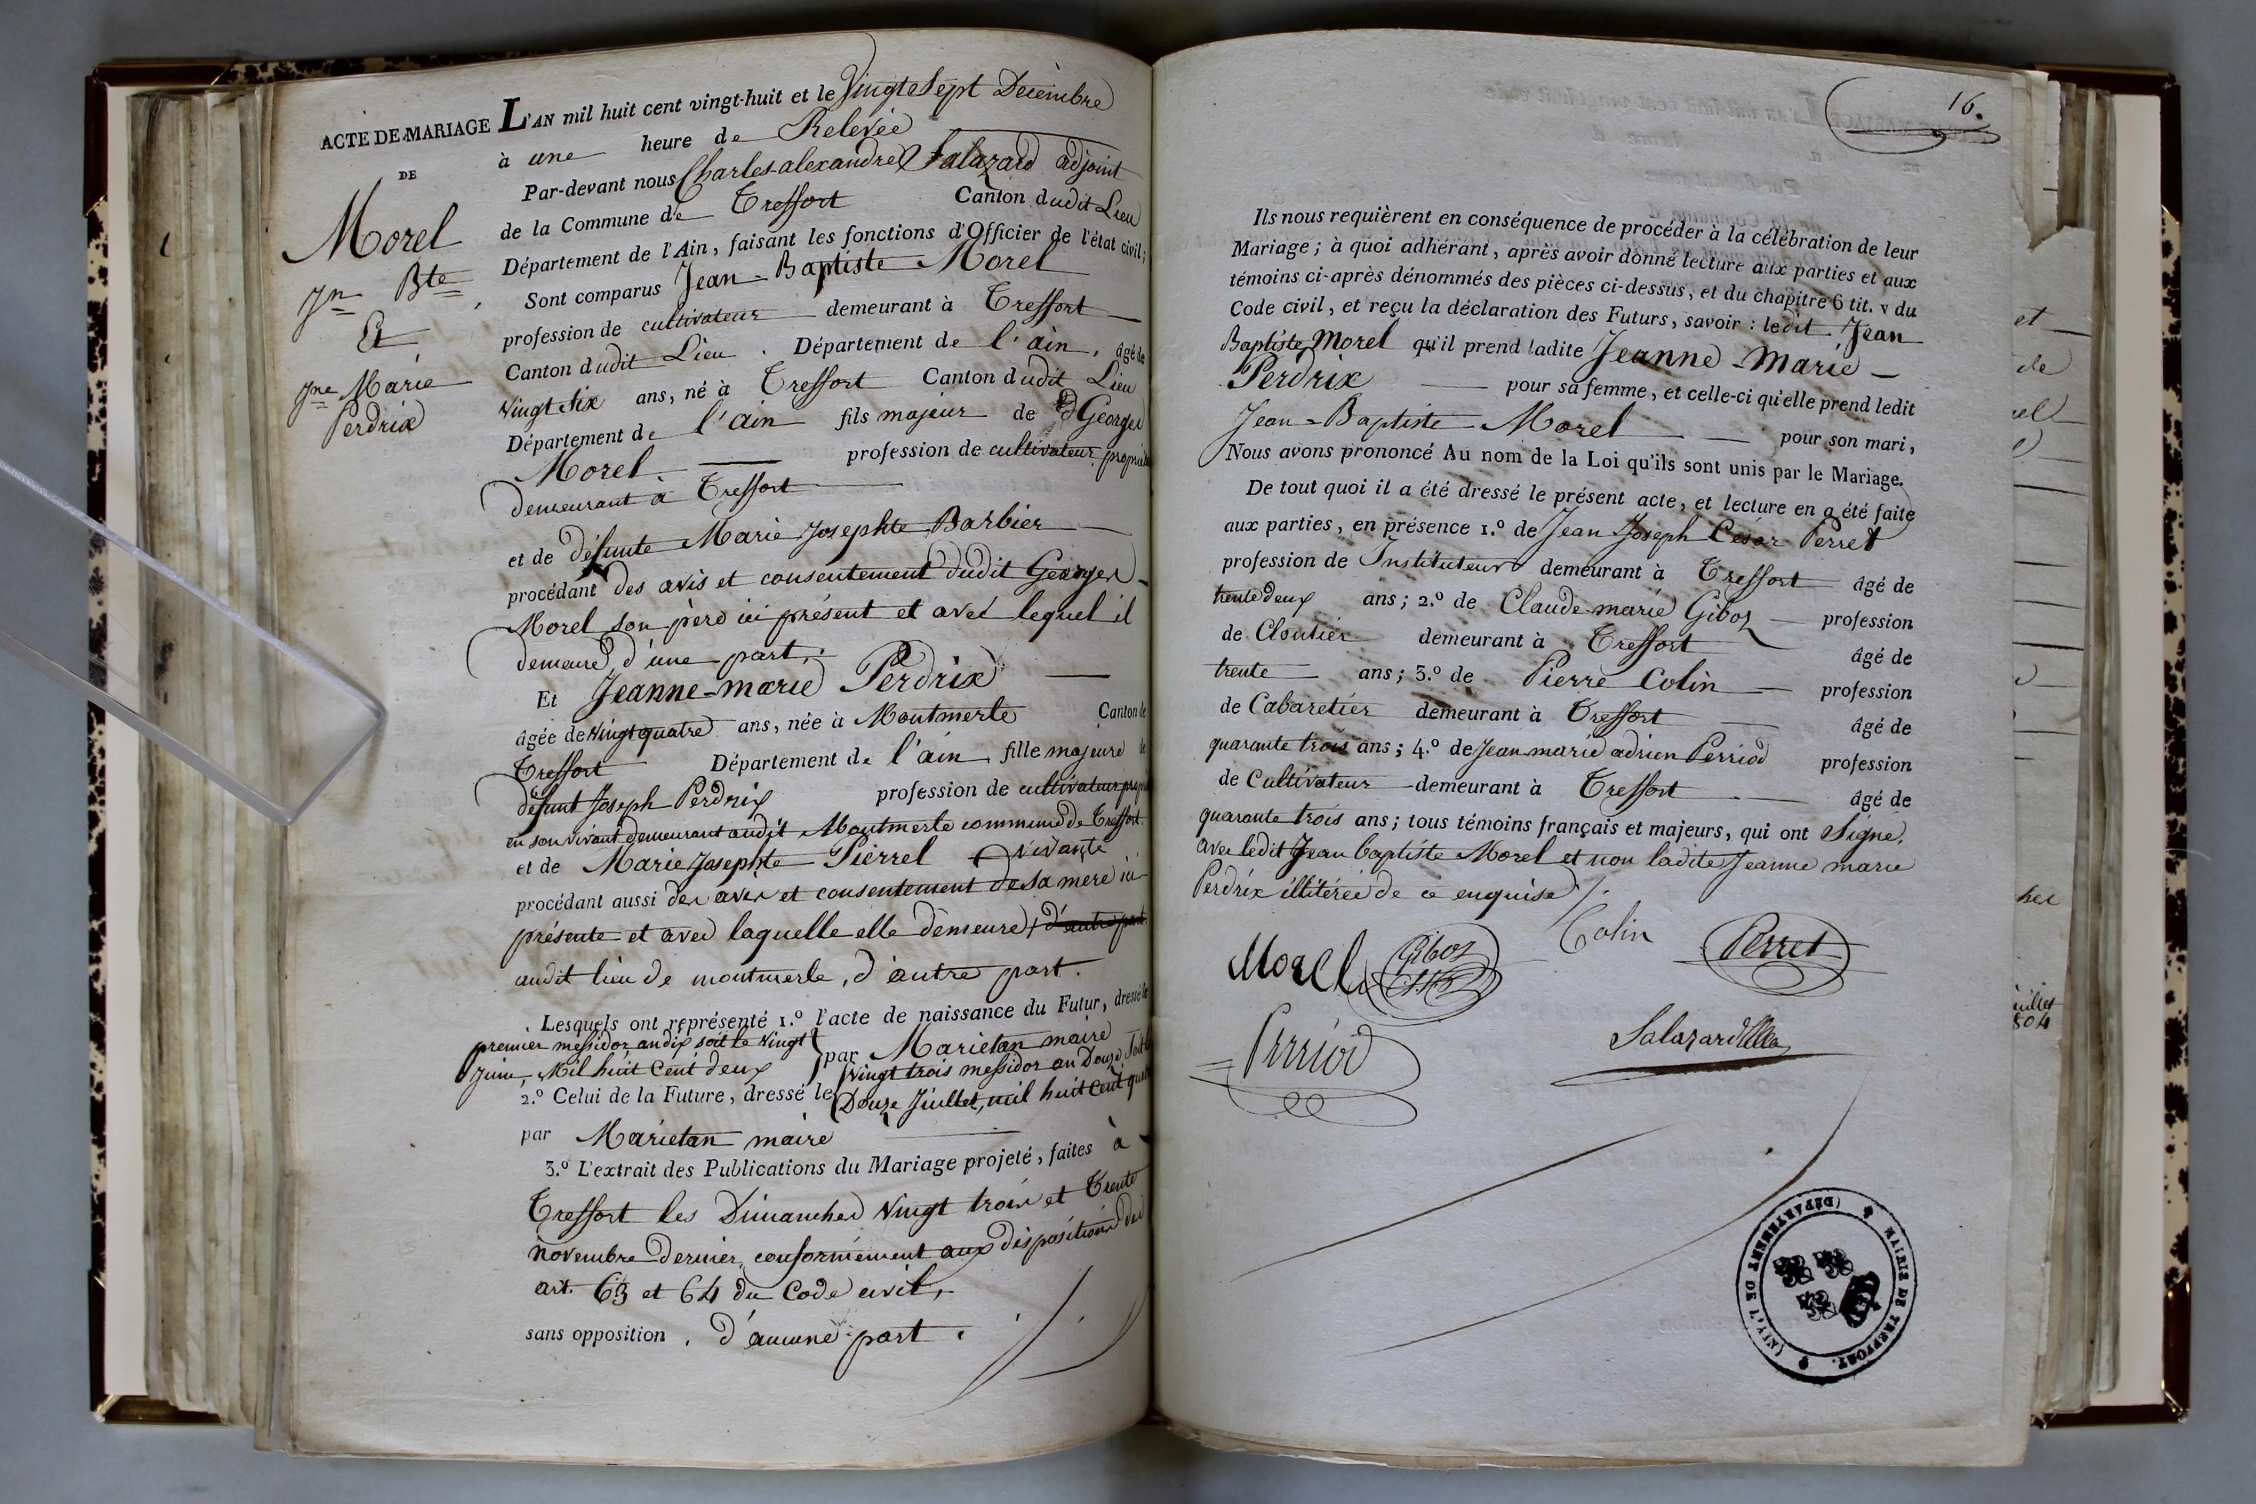 ACTE DE MARIAGE
DE
Morel
Jn Bte
Et
Jne Marie
Perdrix
L'AN mil huit cent vingt-huit et le Vingt Sept Décembre
à une heure de Relevée
Par-devant nous Charles-alexandre Salazard adjoint
de la Commune de Treffort Canton dudit Lieu
Département de l'Ain, faisant les fonctions d'Officier de l'état civil;
Sont comparus Jean-Baptiste Morel
profession de cultivateur demeurant à Treffort
Canton dudit Lieu. Département de l'ain, âgé de
vingt Six ans, né à Treffort Canton dudit Lieu
Département de l'ain fils majeur de Georges
Morel profession de cultivateur
demeurant à Treffort
et de défunte Marie Josephte Barbier
procédant des avis et consentement dudit Georges
Morel son père ici présent et avec lequel il
demeure, d'une part.
Et Jeanne-marie Perdrix
âgée de vingt quatre ans, née à Montmerle Canton de
Treffort Département de l'ain fille majeure de
défunt Joseph Perdrix profession de cultivateur
en son vivant demeurant audit Montmerle commune de Treffort
et de Marie Josephte Pierrel vivante
procédant aussi des avis et consentement de sa mere ici
présente et avec laquelle elle demeure, d'autre part
audit lieu de montmerle, d'autre part.
Lesquels ont représenté 1.º l'acte de naissance du Futur, dressé le
premier messidor an dix soit le vingt
juin, Mil huit Cent deux par Marietan maire
2.º Celui de la Future, dressé le vingt trois messidor an Douze Soit le
Douze Juillet, mil huit cent quatre
par Marietan maire
3.º L'extrait des Publications du Mariage projeté, faites à
Treffort les Dimanches vingt trois et Trente
novembre dernier, conformément aux dispositions des
art. 63 et 64 du Code civil,
sans opposition, d'aucune part.
16.
Ils nous requièrent en conséquence de procéder à la célébration de leur
Mariage; à quoi adhérant, après avoir donné lecture aux parties et aux
témoins ci-après dénommés des pièces ci-dessus, et du chapitre 6 tit. v du
Code civil, et reçu la déclaration des Futurs, savoir: ledit Jean
Baptiste Morel qu'il prend ladite Jeanne-Marie
Perdrix pour sa femme, et celle-ci qu'elle prend ledit
Jean-Baptiste Morel pour son mari,
Nous avons prononcé Au nom de la Loi qu'ils sont unis par le Mariage.
De tout quoi il a été dressé le présent acte, et lecture en a été faite
aux parties, en présence 1.º de Jean Joseph César Perret
profession de Instituteur demeurant à Treffort âgé de
trente deux ans; 2.º de Claude-marie Giboz profession
de Cloutier demeurant à Treffort âgé de
trente ans; 3.º de Pierre Colin profession
de Cabaretier demeurant à Treffort âgé de
quarante trois ans; 4.º de Jean marie adrien Perriod profession
de Cultivateur demeurant à Treffort âgé de
quarante trois ans; tous témoins français et majeurs, qui ont Signé,
avec ledit Jean baptiste Morel et non ladite Jeanne marie
Perdrix illitérée de ce enquise
Morel Giboz Colin Perret
Perriod Salazard
MAIRIE DE TREFFORT. (DÉPARTEMENT DE L'AIN)
et
de
rel
her
uillet
804